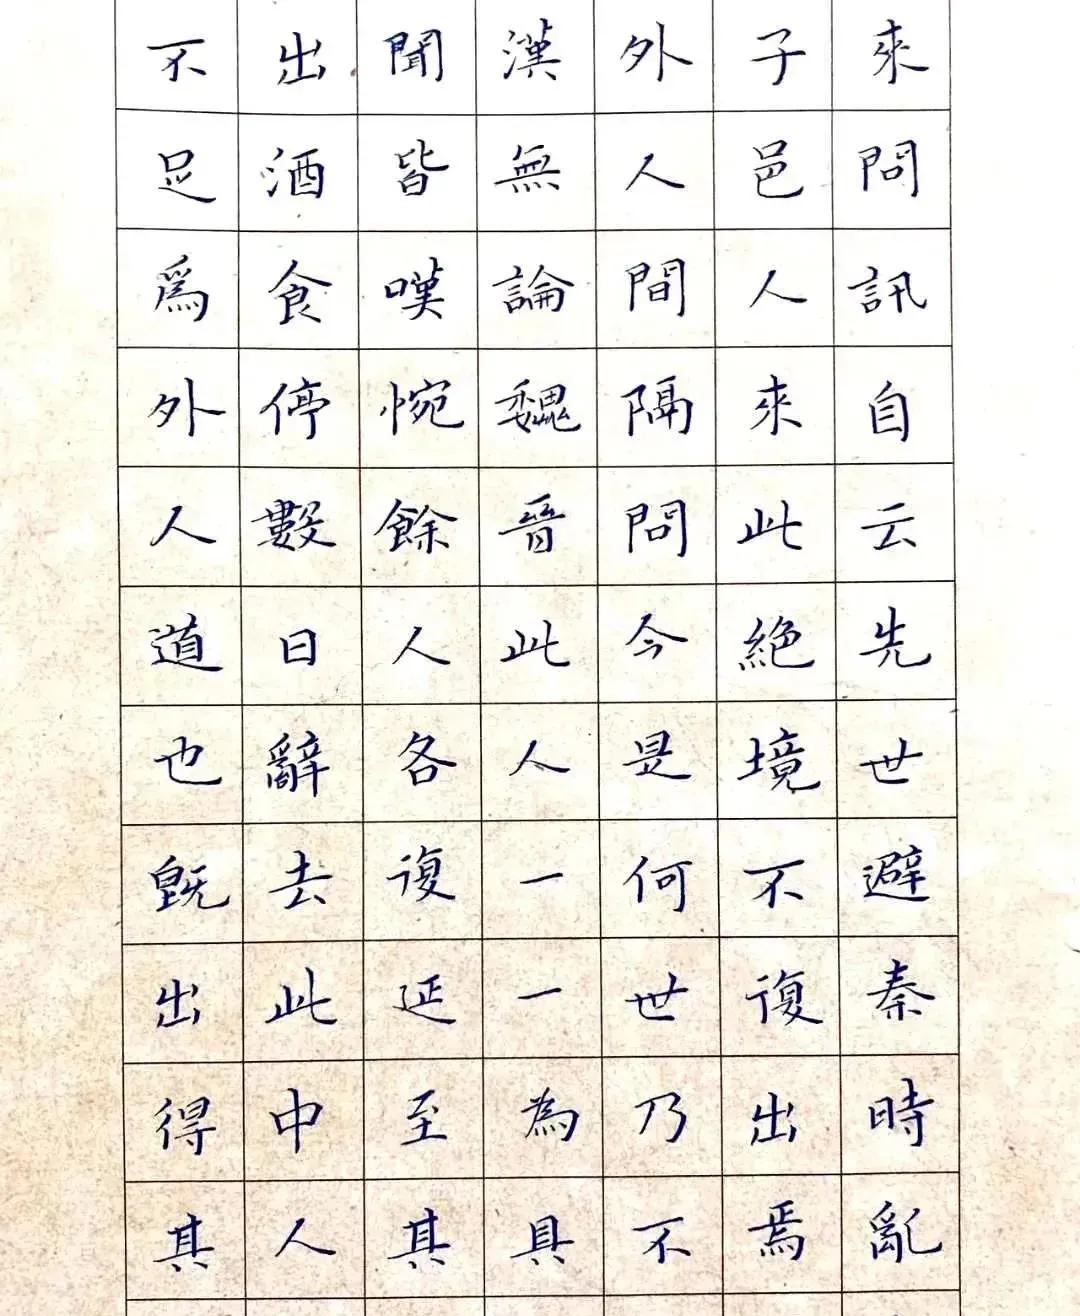 來問訊自云先世避秦時亂
子邑人來此絶境不復出焉
外人間隔問今是何世乃不
漢無論魏晉此人一一為具
聞皆嘆惋餘人各復延至其
出酒食停數日辭去此中人
不足爲外人道也既出得其